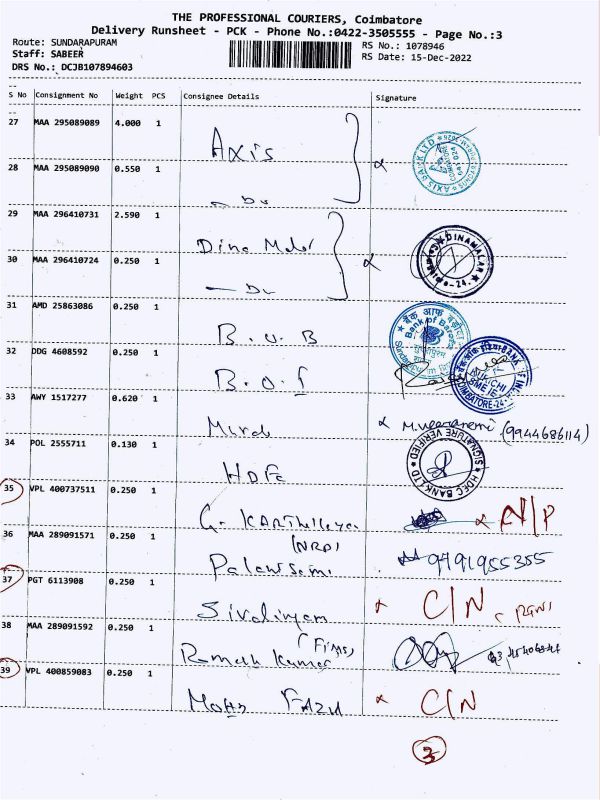 THE PROFESSIONAL COURIERS, Coimbatore
Delivery Runsheet - PCK - Phone No.:0422-3505555 - Page No.:3
Route: SUNDARAPURAM
Staff: SABEER
DRS No.: DCJB107894603
RS No.: 1078946
RS Date: 15-Dec-2022
S No Consignment No Weight PCS Consignee Details Signature
27 MAA 295089089 4.000 1 Axis
AXIS BANK LTD
28 MAA 295089090 0.550 1
29 MAA 296410731 2.590 1
DINAMALAR
30 MAA 296410724 0.250 1
31 AMD 25863086 0.250 1 B.O.B
बैंक ऑफ बड़ौदा
Bank of Baroda
32 DDG 4608592 0.250 1 B.O.I
COIMBATORE-24
33 AWY 1517277 0.620 1 (9944686114)
34 POL 2555711 0.130 1 HDFC
SIGNATURE VERIFIED
HDFC BANK LTD
35 VPL 400737511 0.250 1 G. N/P
36 MAA 289091571 0.250 1 Palanisami 9791955355
37 PGT 6113908 0.250 1 Sivalingam C/N
38 MAA 289091592 0.250 1 Ramesh Kumar
39 VPL 400859083 0.250 1 C/N
3